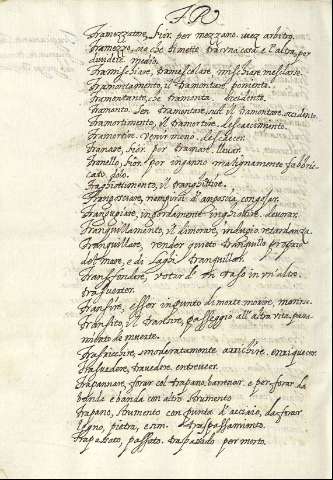 TR
Tramezzatore, fior. per mezzano. juez arbitro.
Tramezzo, cio che tramette tra una cosa e l'altra, per
dividere medio.
Tramischiare, tramescolare, mischiare mesclarse.
Tramontamento, il tramontare, ponente.
Tramontante, che tramonta. occidente.
Tramonto. Sen. Tramontare, sust. il tramontare. occidente.
Tramortimento, il tramortire. desvanecimiento.
Tramortire. venir meno.
Tranare, fior. per trainare.
Tranello, fior. per inganno malignamente fabbri-
cato, dolo.
Tranghiottimento, il tranghiottire.
Trangosciare, riempirsi d'angoscia,
Trangugiare, ingordamente inghiottire. devorar.
Tranquillamento, il dimorare, indugio retardanza.
Tranquillare, render quieto tranquillo
del mare, e di
Transfondere, votar d' un vaso in un' altro.
trasverter.
Transire, esser in punto di morte morire, morirse.
Transito, il transire, passaggio all' altra vita.
miento de muerte.
Trasricchire, smoderatamente arricchire. enriquecer.
Trasvedere, travedere. entrever.
Trapannare, forar col trapano. barrenar. e per forar da
banda a banda con altro strumento
Trapano, strumento con punta d'acciaio, da forar
legno, pietra, e sim. Traspassamiento.
Trapassato, passato. traspasado per morto.